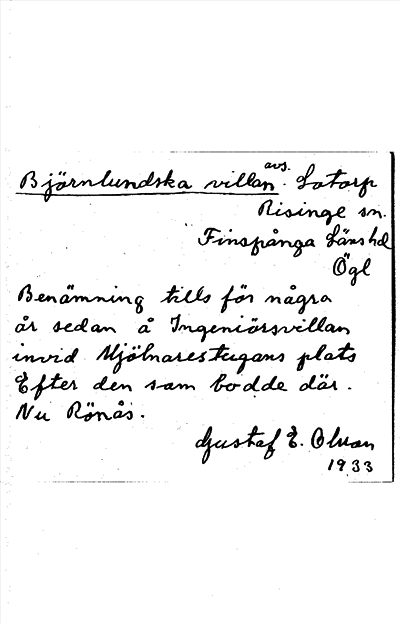 Björnlundska villan. avs. Lotorp
Risinge sn.
Finspånga länshd
Ögl
Benämning tills för några
år sedan å Ingeniörsvillan
invid Mjölnarestugans plats
Efter den som bodde där.
Nu Rönås.
Gustaf E. Olsson
1933